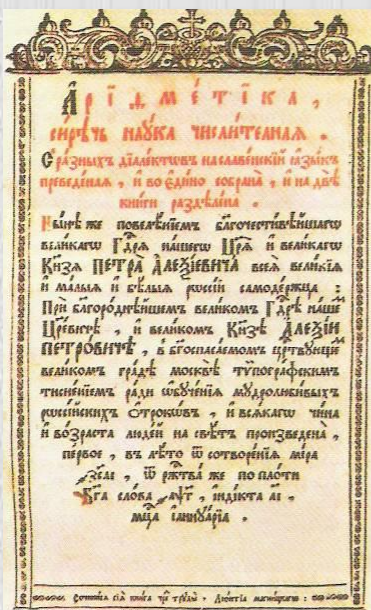 Арїѳме́тїка,
сирѣ́чь наѹ́ка числи́телная .
С ра́зныхъ дїале́ктѡвъ на славе́нскїй ꙗзы́къ
преведе́ная , и во еди́но собрана̀ , и на двѣ̀
кни́ги раздѣле́на .
Ны́нѣ же повелѣ́нїемъ благочести́вѣйшагѡ
вели́кагѡ Гдⷭ҇рѧ на́шегѡ Цр҃ѧ̀ и вели́кагѡ
Кн҃зѧ ПЕТРА̀ АЛЕѮІ́ЕВИЧА всеѧ̀ вели́кїѧ
и ма́лыѧ и бѣ́лыѧ рѡссі́и самоде́ржца :
При благоро́днѣйшемъ вели́комъ Гдⷭ҇рѣ на́шемъ
Цр҃е́вичѣ , и вели́комъ Кн҃зѣ АЛЕѮІ́И
ПЕТРО́ВИЧѢ , в бг҃оспаса́емомъ црⷭ҇твующемъ
вели́комъ гра́дѣ москвѣ̀ тѷпогра́фскимъ
тисне́нїемъ ра́ди ѡбуче́нїѧ мудролюби́выхъ
рѡссі́йскихъ ѻ́трокѡвъ , и всѧ́кагѡ чи́на
и во́зраста люде́й на свѣ́тъ произведе́на ,
пе́рвое , въ лѣ́то ѿ сотворе́нїѧ мі́ра
҂зсаі , ѿ ржⷭ҇тва̀ же по пло́ти
Бг҃а сло́ва ҂аѱг , інді́кта аі ,
мцⷭ҇а іаннуа́рїа .
Сочинисѧ сїѧ книга чрез труды Леонтїа магницкаго :